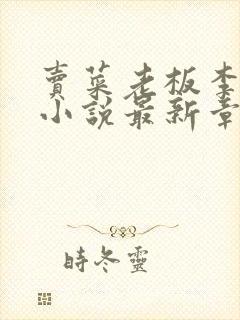 賣菜老板李
小說最新章
時冬靈